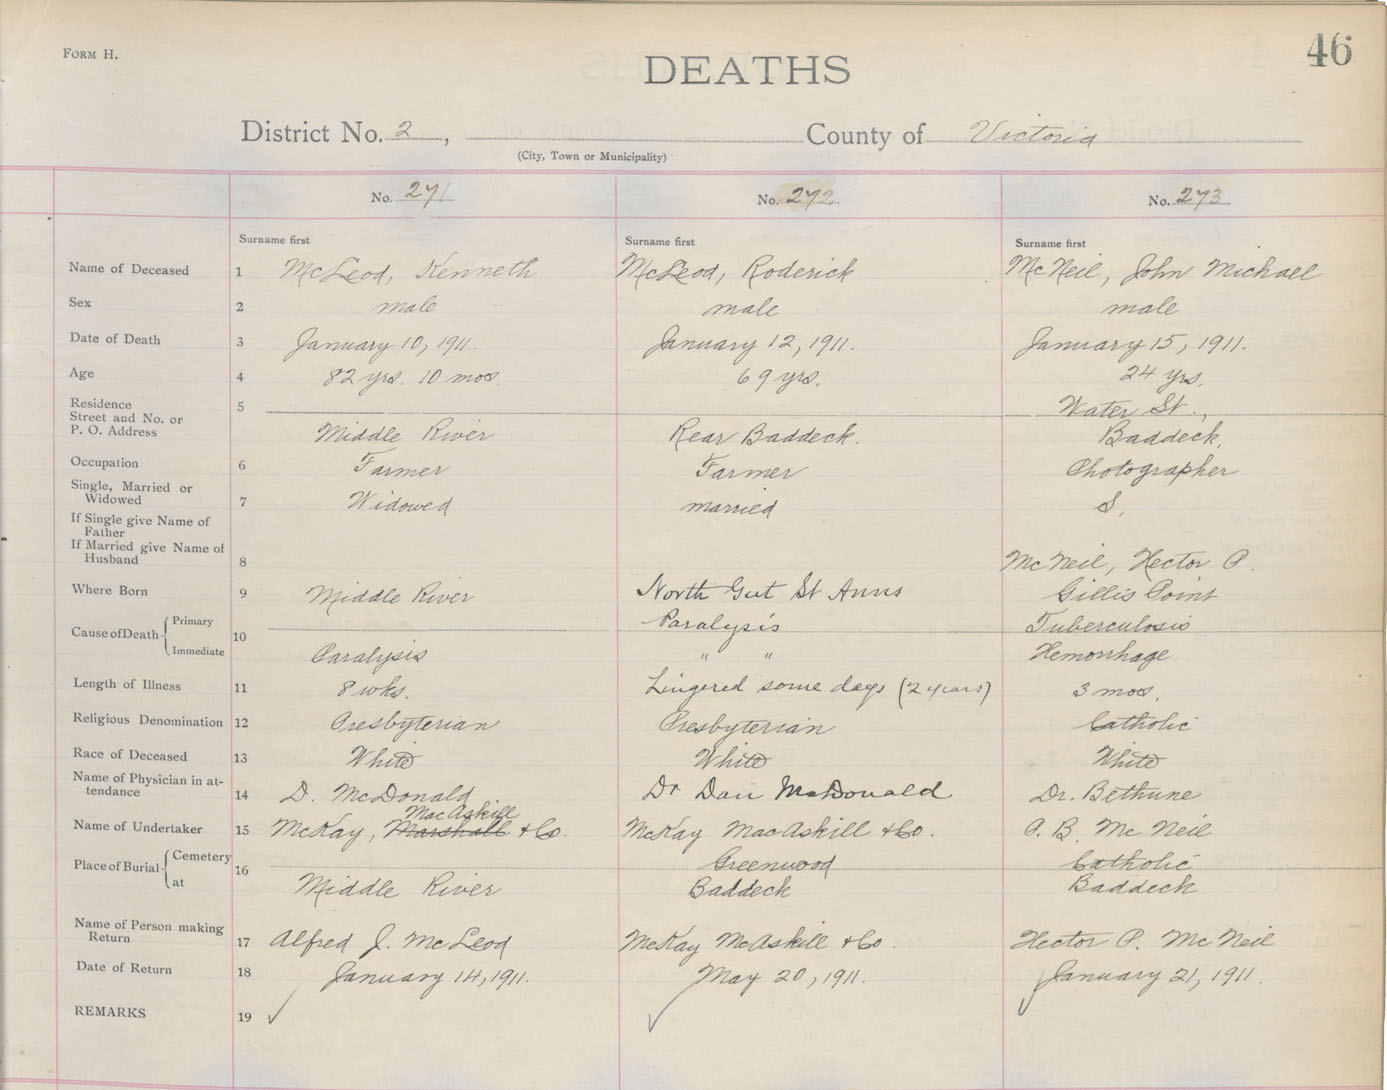 FORM H.
46
DEATHS
District No. 2, County of Victoria
(City, Town or Municipality)
No. 271 No. 272 No. 273
Surname first Surname first Surname first
Name of Deceased 1 McLeod, Kenneth McLeod, Roderick McNeil, John Michael
Sex 2 male male male
Date of Death 3 January 10, 1911. January 12, 1911. January 15, 1911.
Age 4 82 yrs. 10 mos. 69 yrs. 24 yrs.
Residence 5 Water St.,
Street and No. or
P. O. Address Middle River Rear Baddeck. Baddeck.
Occupation 6 Farmer Farmer Photographer
Single, Married or
Widowed 7 Widowed married S.
If Single give Name of
Father
If Married give Name of
Husband 8 McNeil, Hector P.
Where Born 9 Middle River North Gut St Anns Gillis Point
Cause of Death Primary 10 Paralysis Tuberculosis
Immediate Paralysis " " Hemorrhage
Length of Illness 11 8 wks. Lingered some days (2 years) 3 mos.
Religious Denomination 12 Presbyterian Presbyterian Catholic
Race of Deceased 13 White White White
Name of Physician in at-
tendance 14 D. McDonald Dr Dan McDonald Dr. Bethune
MacAskill
Name of Undertaker 15 McKay, Marshall & Co. McKay MacAskill & Co. P. B. McNeil
Place of Burial Cemetery 16 Greenwood Catholic
at Middle River Baddeck Baddeck
Name of Person making
Return 17 Alfred J. McLeod McKay McAskill & Co. Hector P. McNeil
Date of Return 18 January 14, 1911. May 20, 1911. January 21, 1911.
REMARKS 19